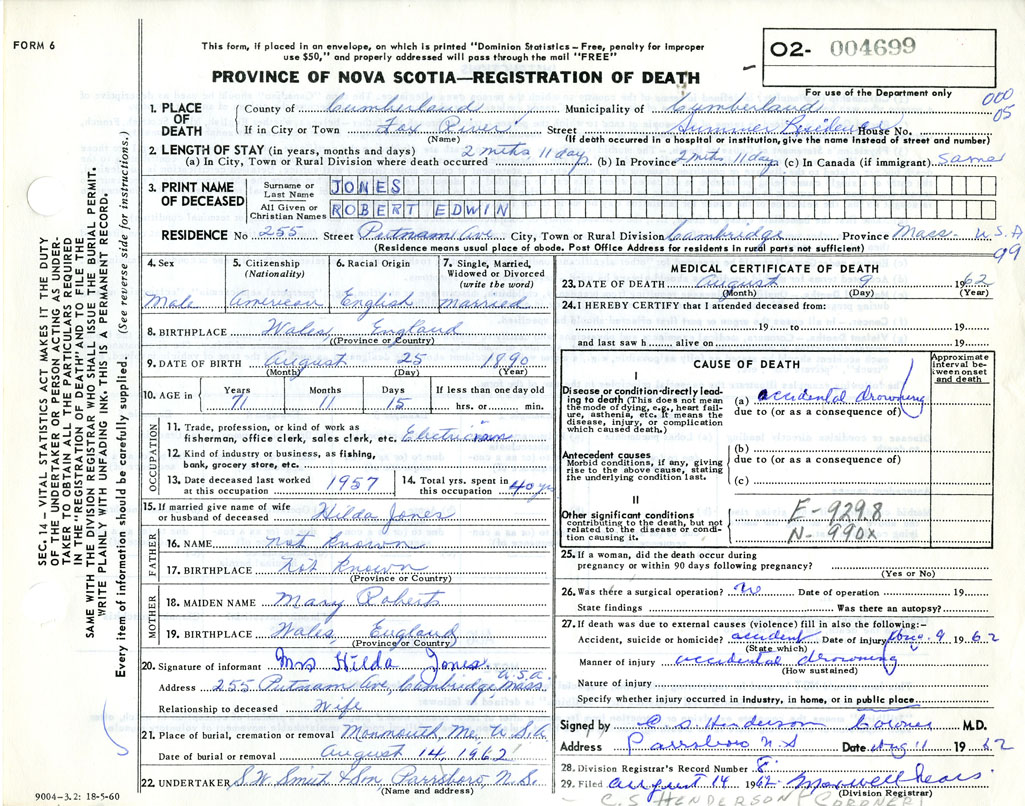 FORM 6
This form, if placed in an envelope, on which is printed "Dominion Statistics – Free, penalty for improper
use $50," and properly addressed will pass through the mail "FREE"
PROVINCE OF NOVA SCOTIA—REGISTRATION OF DEATH
O2- 004699
For use of the Department only
000
05
1. PLACE OF DEATH
County of Cumberland Municipality of Cumberland
If in City or Town Fox River Street Summer Residence House No.
(Name) (If death occurred in a hospital or institution, give the name instead of street and number)
2. LENGTH OF STAY (in years, months and days)
(a) In City, Town or Rural Division where death occurred 2 mths 11 day (b) In Province 2 mths 11 days (c) In Canada (if immigrant) same
3. PRINT NAME OF DECEASED
Surname or Last Name JONES
All Given or Christian Names ROBERT EDWIN
RESIDENCE No 255 Street Putnam Ave. City, Town or Rural Division Cambridge Province Mass. U.S.A
(Residence means usual place of abode. Post Office Address for residents in rural parts not sufficient)
99
4. Sex
Male
5. Citizenship
(Nationality)
American
6. Racial Origin
English
7. Single, Married, Widowed or Divorced
(write the word)
married
8. BIRTHPLACE Wales England
(Province or Country)
9. DATE OF BIRTH August 25 1890
(Month) (Day) (Year)
10. AGE in
Years Months Days If less than one day old
71 11 15 hrs. or min.
OCCUPATION
11. Trade, profession, or kind of work as
fisherman, office clerk, sales clerk, etc. Electrician
12. Kind of industry or business, as fishing,
bank, grocery store, etc.
13. Date deceased last worked
at this occupation 1957
14. Total yrs. spent in
this occupation 40 yrs
15. If married give name of wife
or husband of deceased Hilda Jones
FATHER
16. NAME Not Known
17. BIRTHPLACE Not Known
(Province or Country)
MOTHER
18. MAIDEN NAME Mary Roberts
19. BIRTHPLACE Wales England
(Province or Country)
20. Signature of informant Mrs Hilda Jones
U.S.A.
Address 255 Putnam Ave, Cambridge, Mass.
Relationship to deceased Wife
21. Place of burial, cremation or removal Monmouth, Me. U.S.A
Date of burial or removal August 14, 1962
22. UNDERTAKER S.W. Smith & Son Parrsboro, N.S.
(Name and address)
9004-3.2: 18-5-60
MEDICAL CERTIFICATE OF DEATH
23. DATE OF DEATH August 9 1962
(Month) (Day) (Year)
24. I HEREBY CERTIFY that I attended deceased from:
19 to 19
and last saw h alive on 19
CAUSE OF DEATH
Approximate interval between onset and death
I
Disease or condition directly leading to death (This does not mean the mode of dying, e.g., heart failure, asthenia, etc. It means the disease, injury, or complication which caused death.)
(a) accidental drowning
due to (or as a consequence of)
Antecedent causes
Morbid conditions, if any, giving rise to the above cause, stating the underlying condition last.
(b)
due to (or as a consequence of)
(c)
II
Other significant conditions
contributing to the death, but not related to the disease or condition causing it.
E-929.8
N-990X
25. If a woman, did the death occur during
pregnancy or within 90 days following pregnancy?
(Yes or No)
26. Was there a surgical operation? No Date of operation 19
State findings Was there an autopsy?
27. If death was due to external causes (violence) fill in also the following:-
Accident, suicide or homicide? accident Date of injury Aug. 9 1962
(State which)
Manner of injury accidental drowning
(How sustained)
Nature of injury
Specify whether injury occurred in industry, in home, or in public place
Signed by C. S. Henderson Coroner M.D.
Address Parrsboro N.S Date Aug 11 1962
28. Division Registrar's Record Number 8
29. Filed August 14 1962
(Division Registrar)
C.S HENDERSON (CORONER)
SEC. 14 – VITAL STATISTICS ACT MAKES IT THE DUTY
OF THE UNDERTAKER OR PERSON ACTING AS UNDER-
TAKER TO OBTAIN ALL THE PARTICULARS REQUIRED
IN THE "REGISTRATION OF DEATH" AND TO FILE THE
SAME WITH THE DIVISION REGISTRAR WHO SHALL ISSUE THE BURIAL PERMIT.
WRITE PLAINLY WITH UNFADING INK. THIS IS A PERMANENT RECORD.
Every item of information should be carefully supplied. (See reverse side for instructions.)